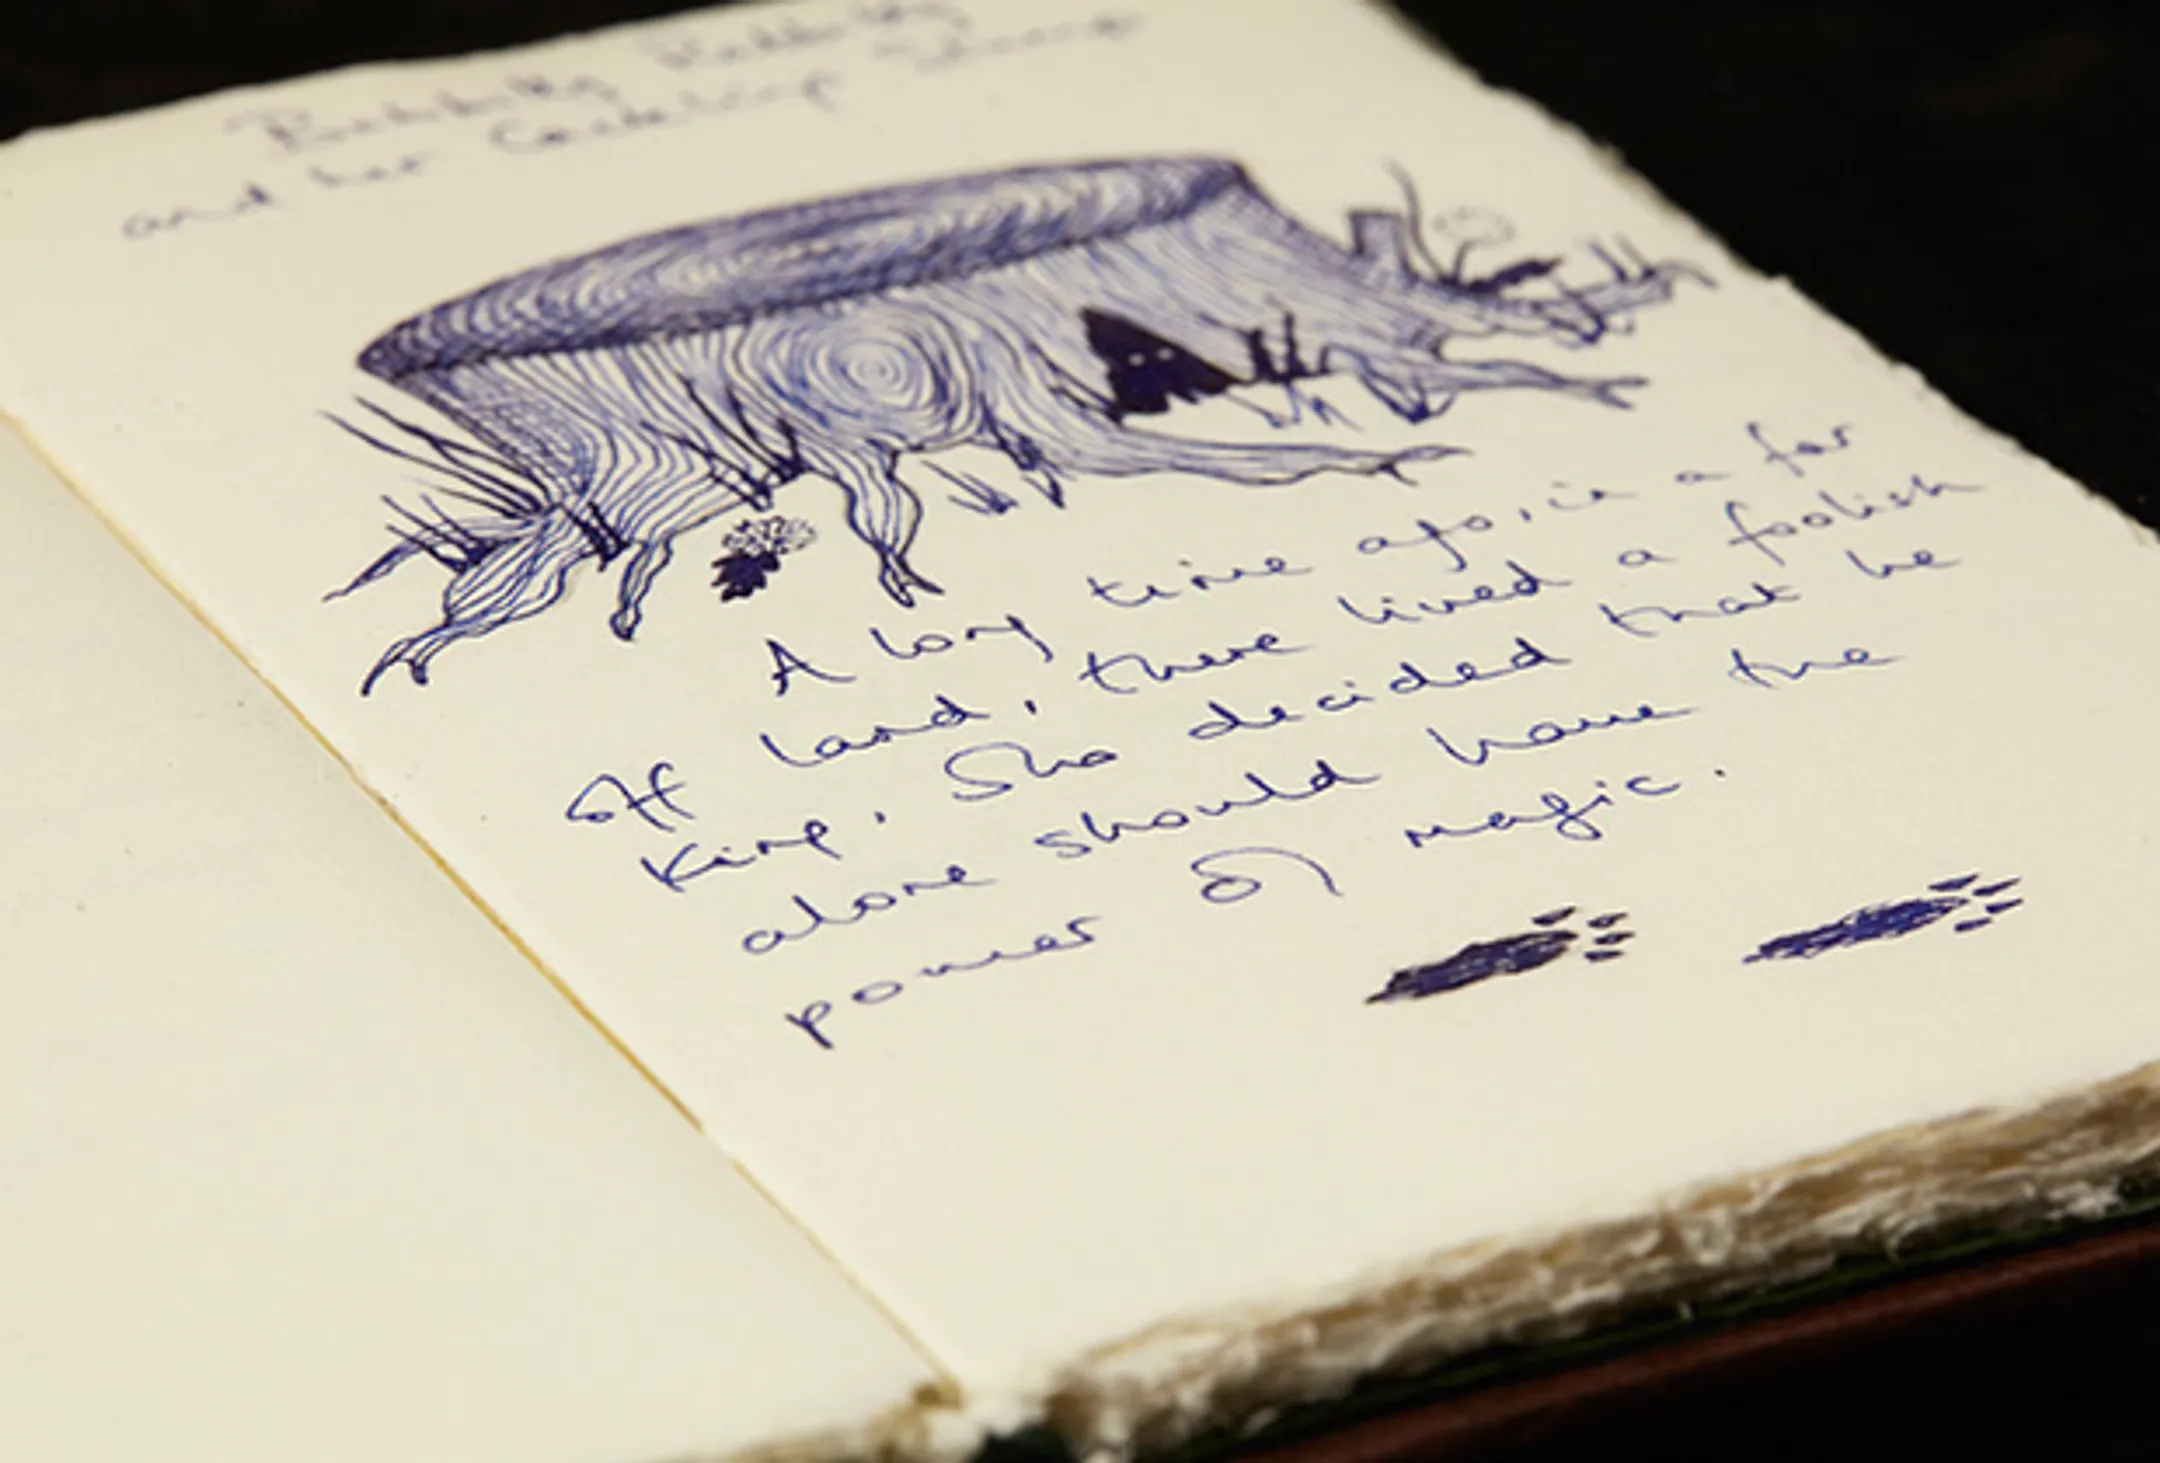 Babbitty Rabbitty
and her Cackling Stump
A long time ago, in a far
off land, there lived a foolish
King, who decided that he
alone should have the
power of magic.